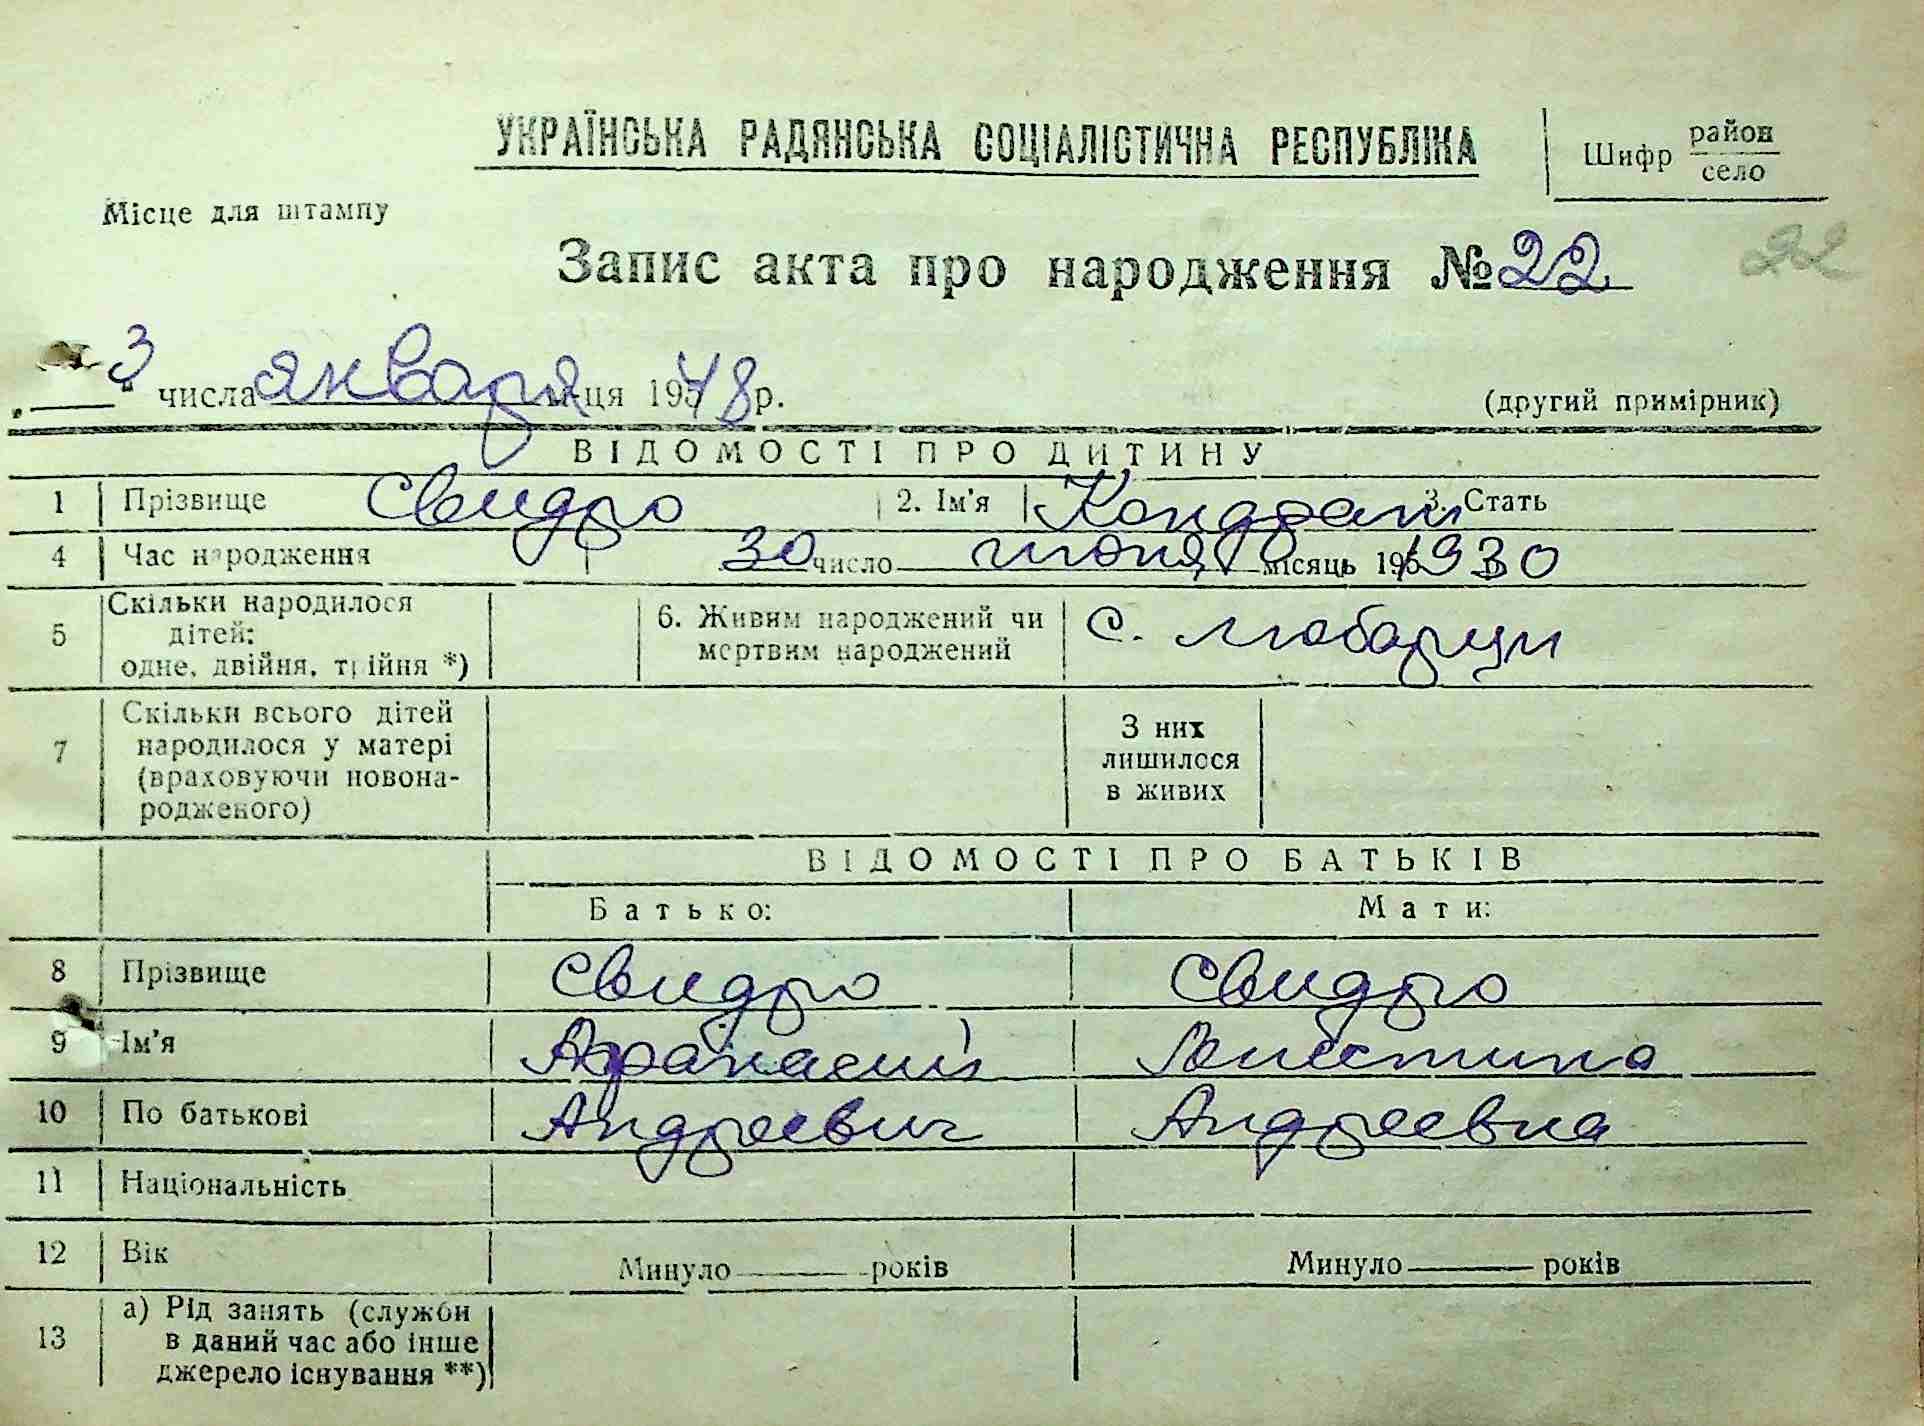 УКРАЇНСЬКА РАДЯНСЬКА СОЦІАЛІСТИЧНА РЕСПУБЛІКА
Шифр район
село
Місце для штампу
Запис акта про народження № 22 22
"3" числа января м-ця 1948 р. (другий примірник)
ВІДОМОСТІ ПРО ДИТИНУ
1 Прізвище Свидро 2. Ім'я Кондрат 3. Стать
4 Час народження 30 число июня місяць 195 1930
5 Скільки народилося дітей: одне, двійня, трійня *) 6. Живим народжений чи мертвим народжений с. Любарци
7 Скільки всього дітей народилося у матері (враховуючи новонародженого) З них лишилося в живих
ВІДОМОСТІ ПРО БАТЬКІВ
Батько: Мати:
8 Прізвище Свидро Свидро
9 Ім'я Афанасий
10 По батькові Андреевич Андреевна
11 Національність
12 Вік Минуло років Минуло років
13 а) Рід занять (служби в даний час або інше джерело існування **)